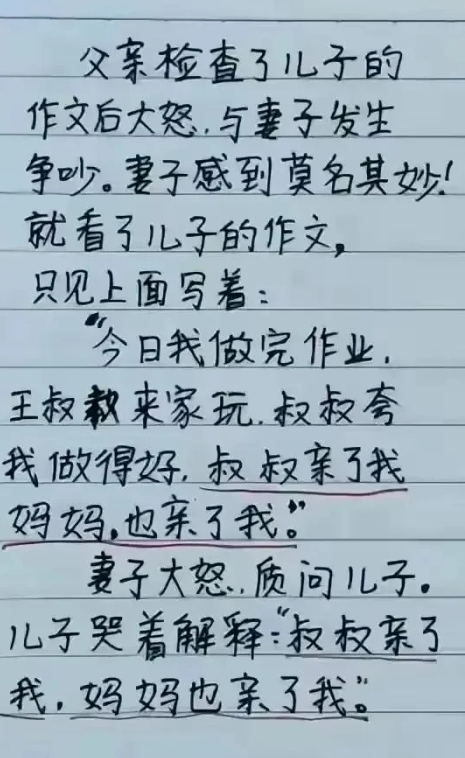 父亲检查了儿子的
作文后大怒,与妻子发生
争吵。妻子感到莫名其妙!
就看了儿子的作文,
只见上面写着:
“今日我做完作业,
王叔叔来家玩,叔叔夸
我做得好,叔叔亲了我
妈妈,也亲了我。”
妻子大怒,质问儿子。
儿子哭着解释:“叔叔亲了
我,妈妈也亲了我。”